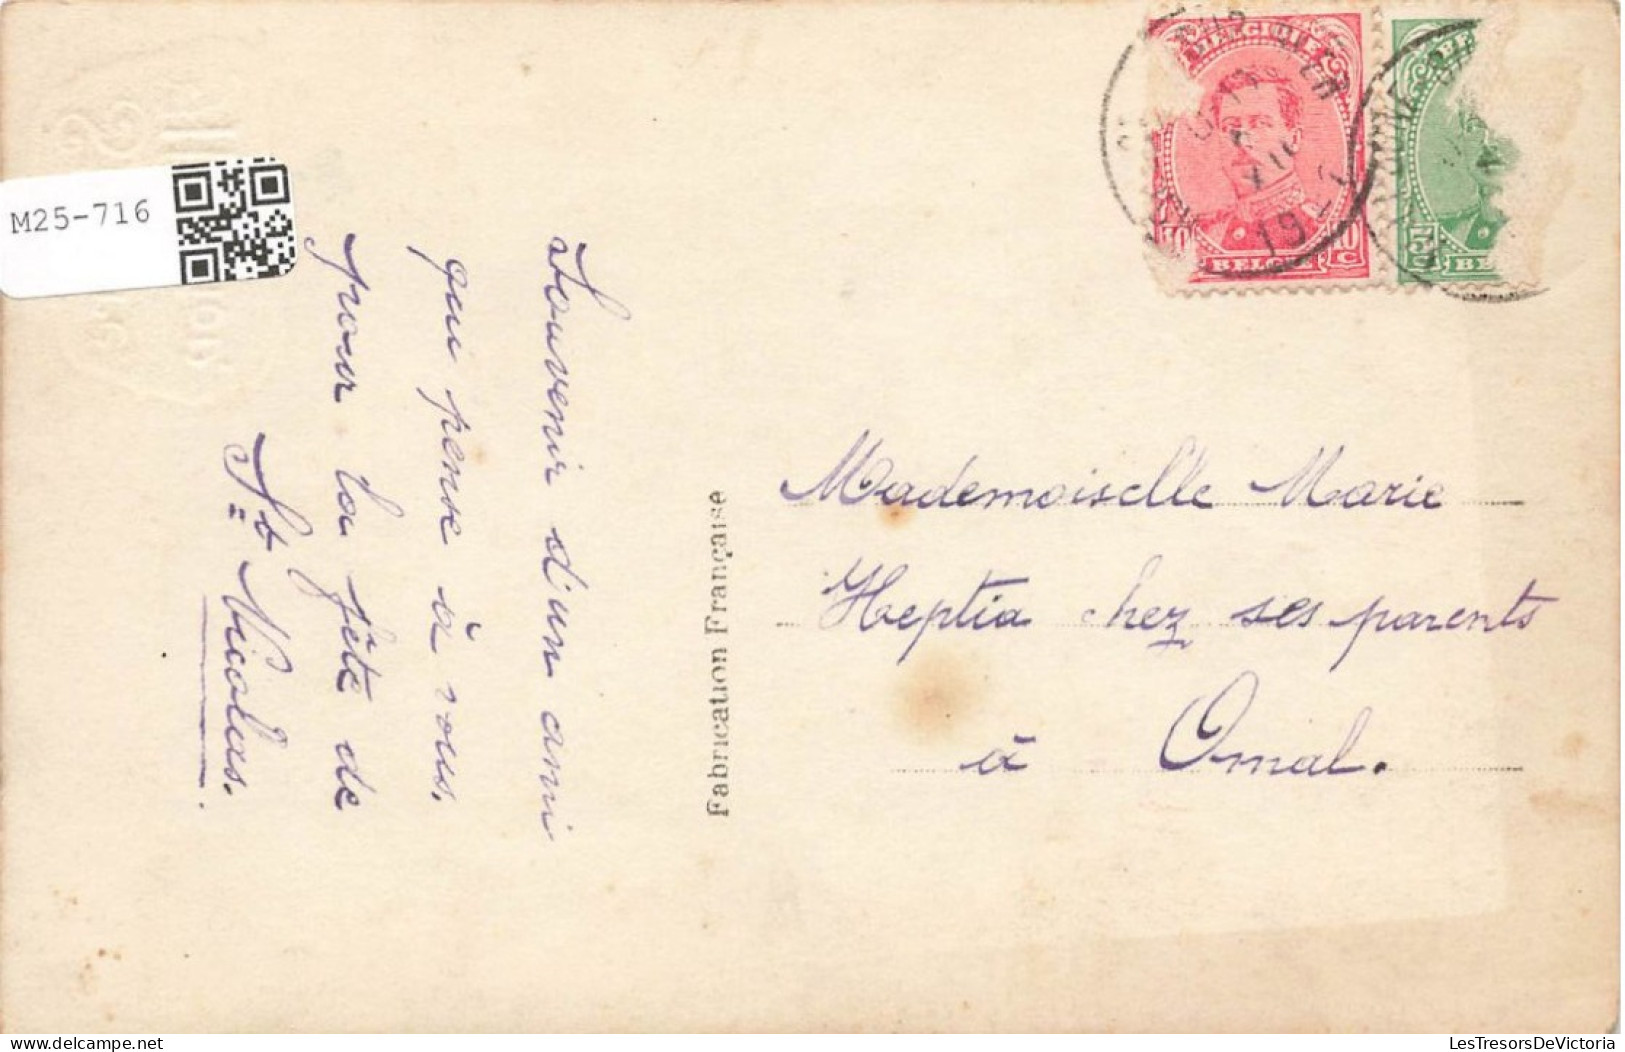 M25-716
Souvenir d'un ami
qui pense à vous,
pour la fête de
St Nicolas.
Fabrication Française
BELGIQUE
10
10 C
BELGIE
19
BE
5
BE
Mademoiselle Marie
Heptia chez ses parents
à Omal.
LesTresorsDeVictoria